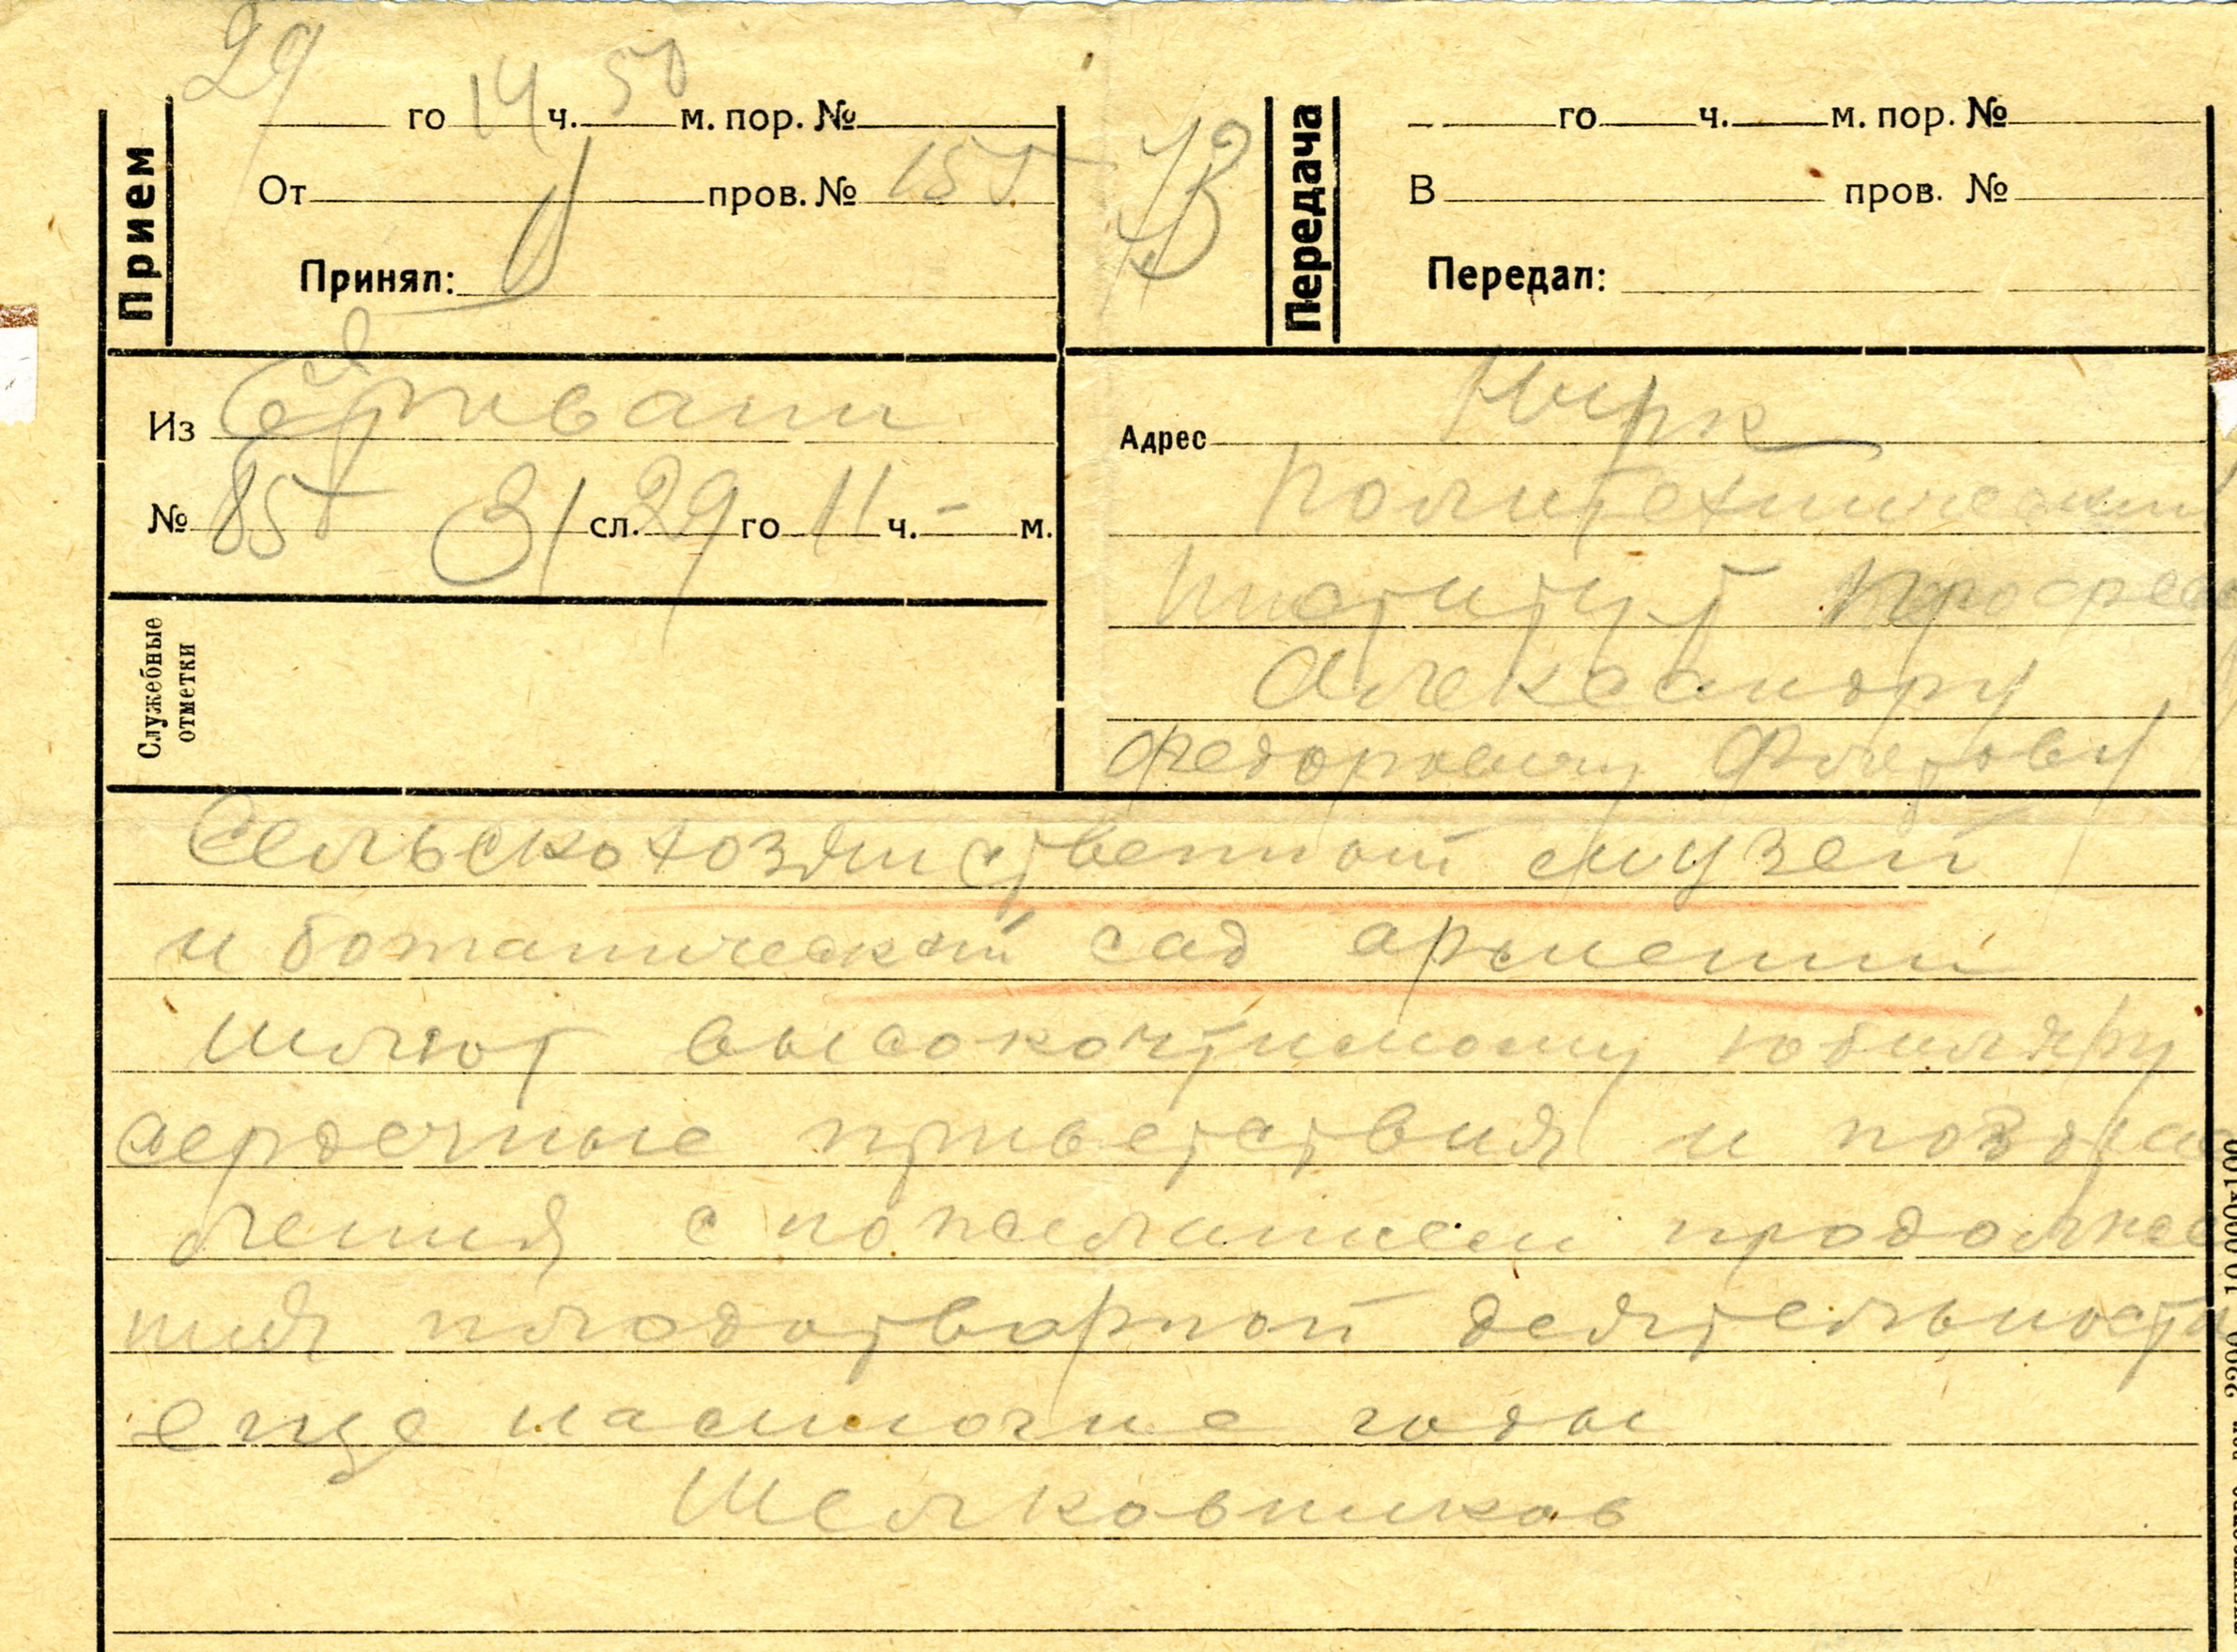 29 го 14 ч. 50 м. пор. №
От пров. № 155
Принял:
Прием
Передача
го ч. м. пор. №
В пров. №
Передал:
Из Еривани
№ 855 31 сл. 29 го 11 ч. - м.
Служебные
отметки
Адрес Нчрк
Политехнически
институт
Александру
Федоровичу Флерову
Сельскохозяиственный музей
и ботанический сад армении
шлют высокочтимому юбиляру
сердечные приветствия и поздрав
ления с пожеланием продолже
ния плодотворной деятельности
еще на многие годы
Шелковников